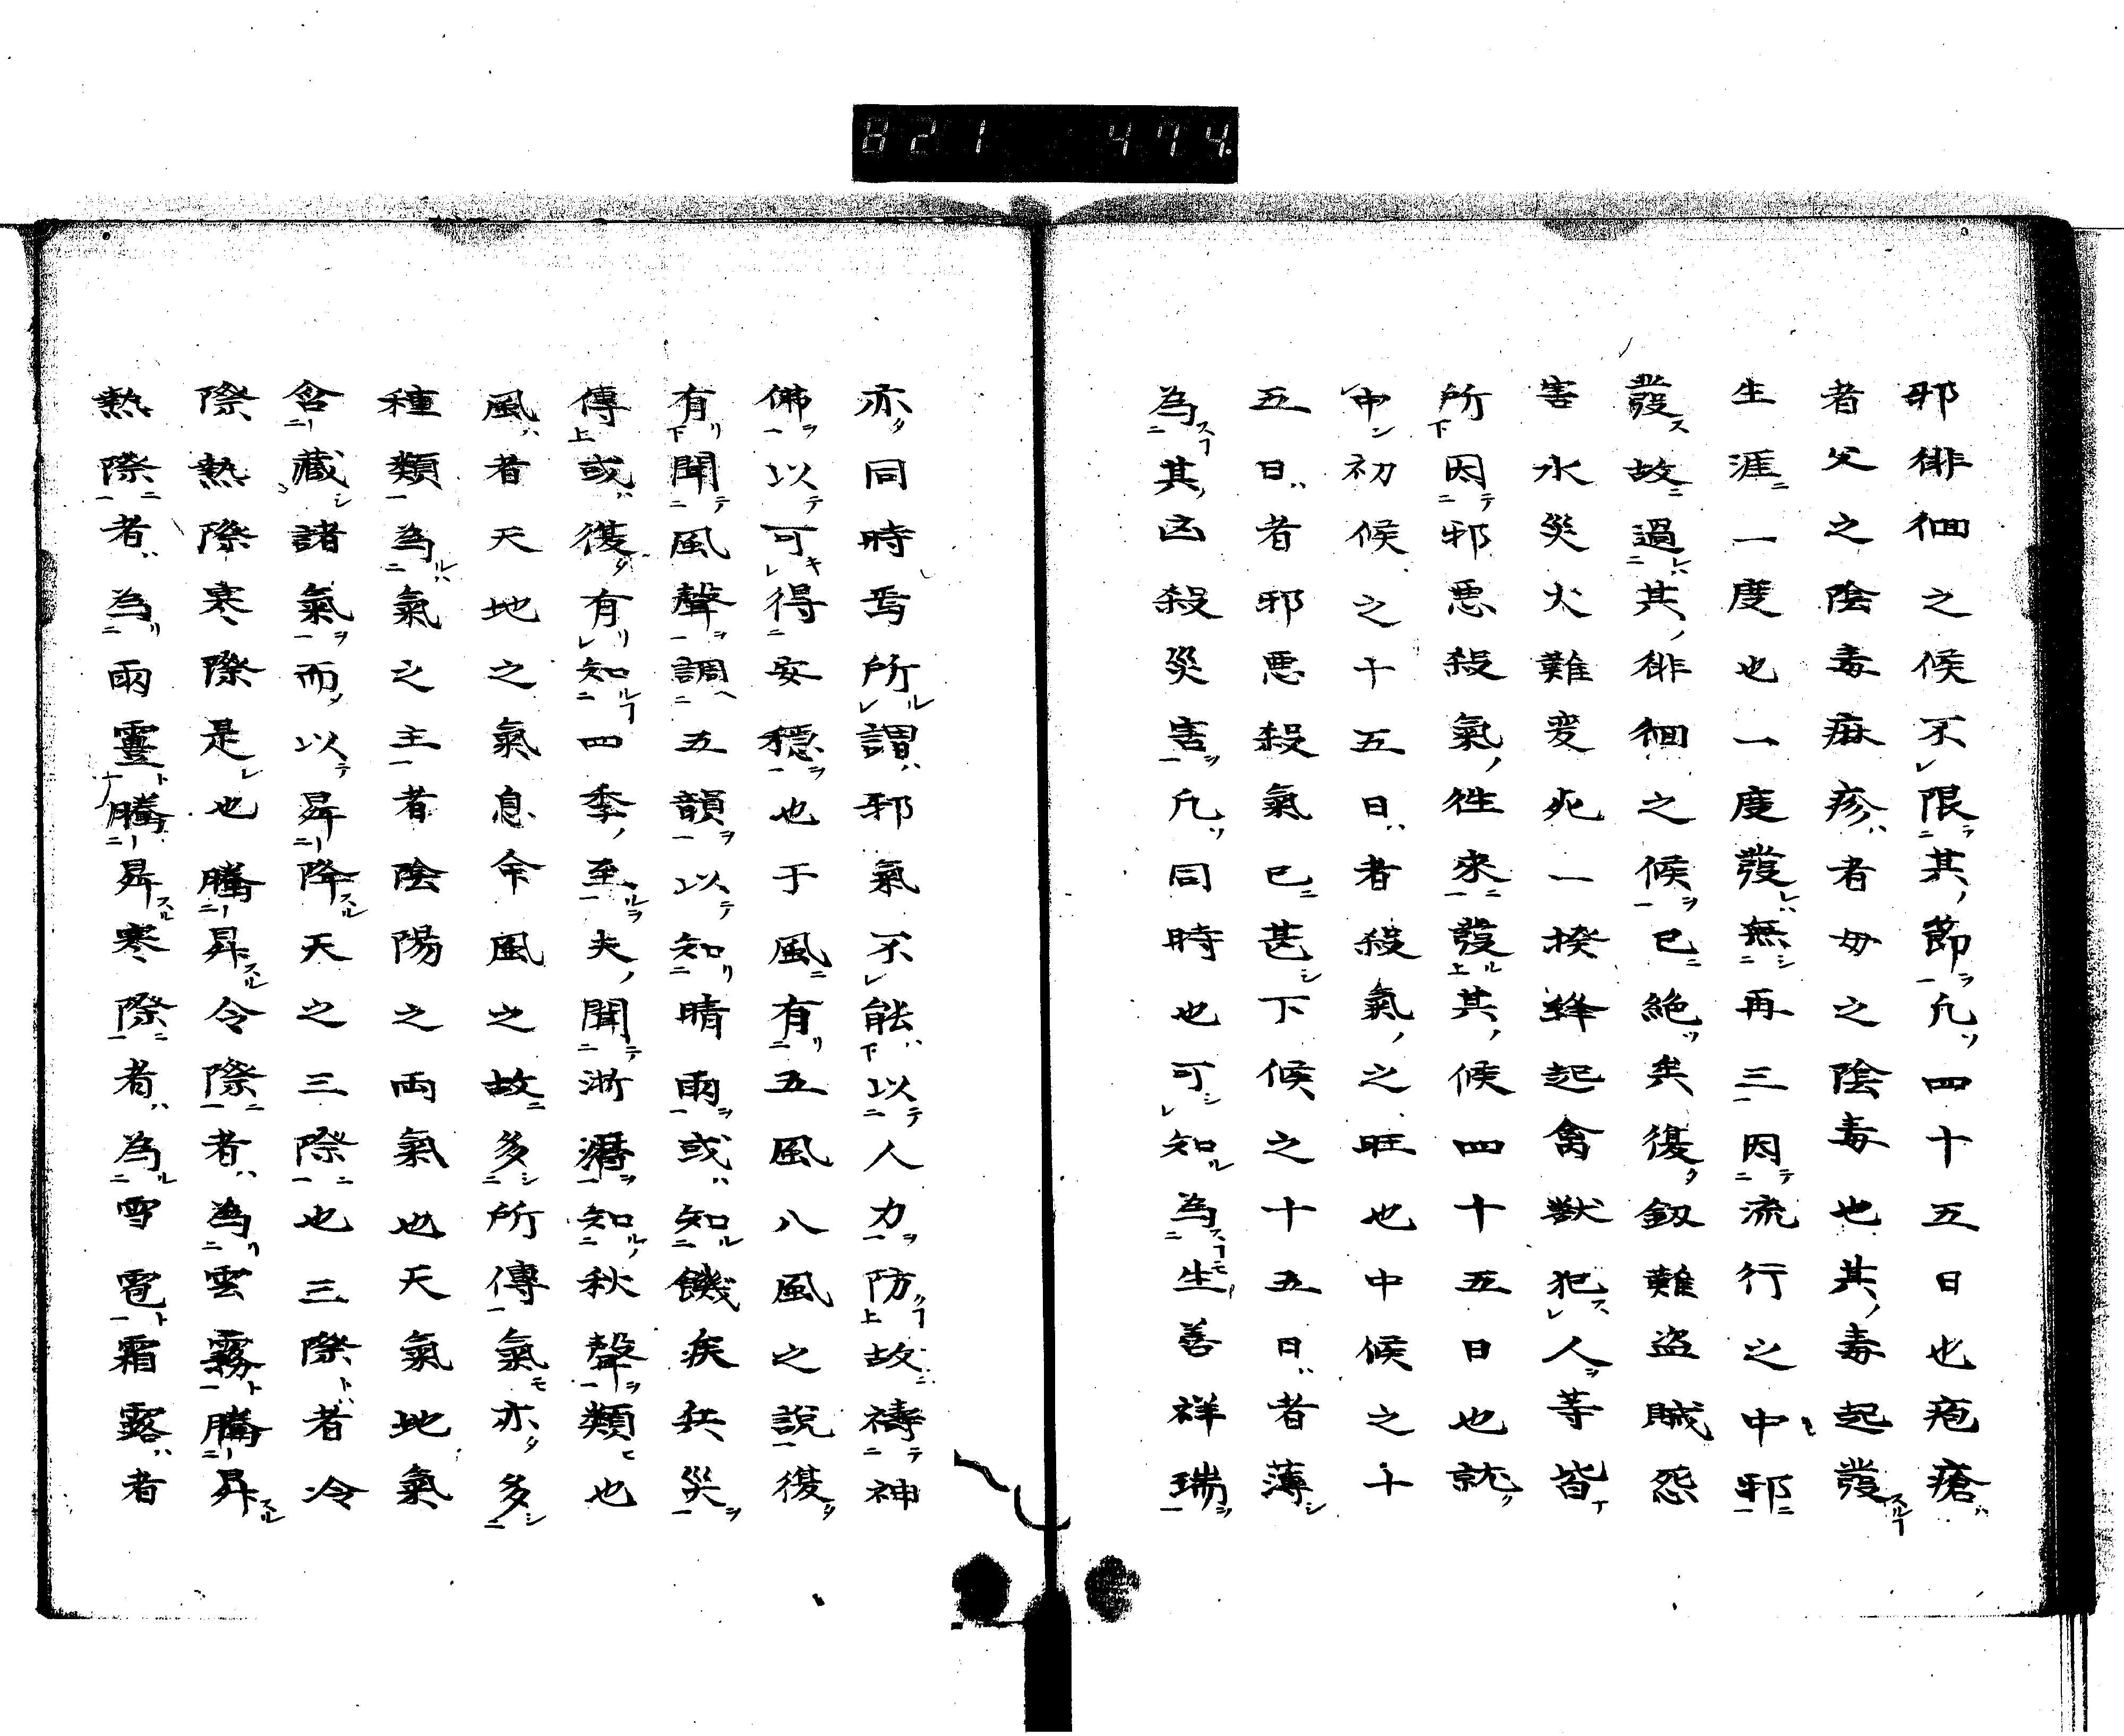 821 474
邪徘徊之候不限其節凡四十五日也疱瘡
者父之陰毒痳疹者母之陰毒也其毒起發
生涯一度也一度發無再三因流行之中邪
發故過其徘徊之候已絶矣復釼難盗賊怨
害水災火難変死一揆蜂起禽獣犯人等皆
所因邪悪殺氣徃來發其候四十五日也就
中初候之十五日者殺氣之旺也中候之十
五日者邪悪殺氣已甚下候之十五日者薄
為其凶殺災害凡同時也可知為生善祥瑞
亦同時焉所謂邪氣不能以人力防故禱神
佛以可得安穏也于風有五風八風之説復
有聞風聲調五韻以知晴雨或知饑疾兵災
傳或復有知四季至夫聞淅潜知秋聲類也
風者天地之氣息命風之故多所傳氣亦多
種類為氣之主者陰陽之両氣也天氣地氣
含藏諸氣而以昇降天之三際也三際者冷
際熱際寒際是也騰昇令際者為雲霧騰昇
熱際者為雨霻騰昇寒際者為雪雹霜露者